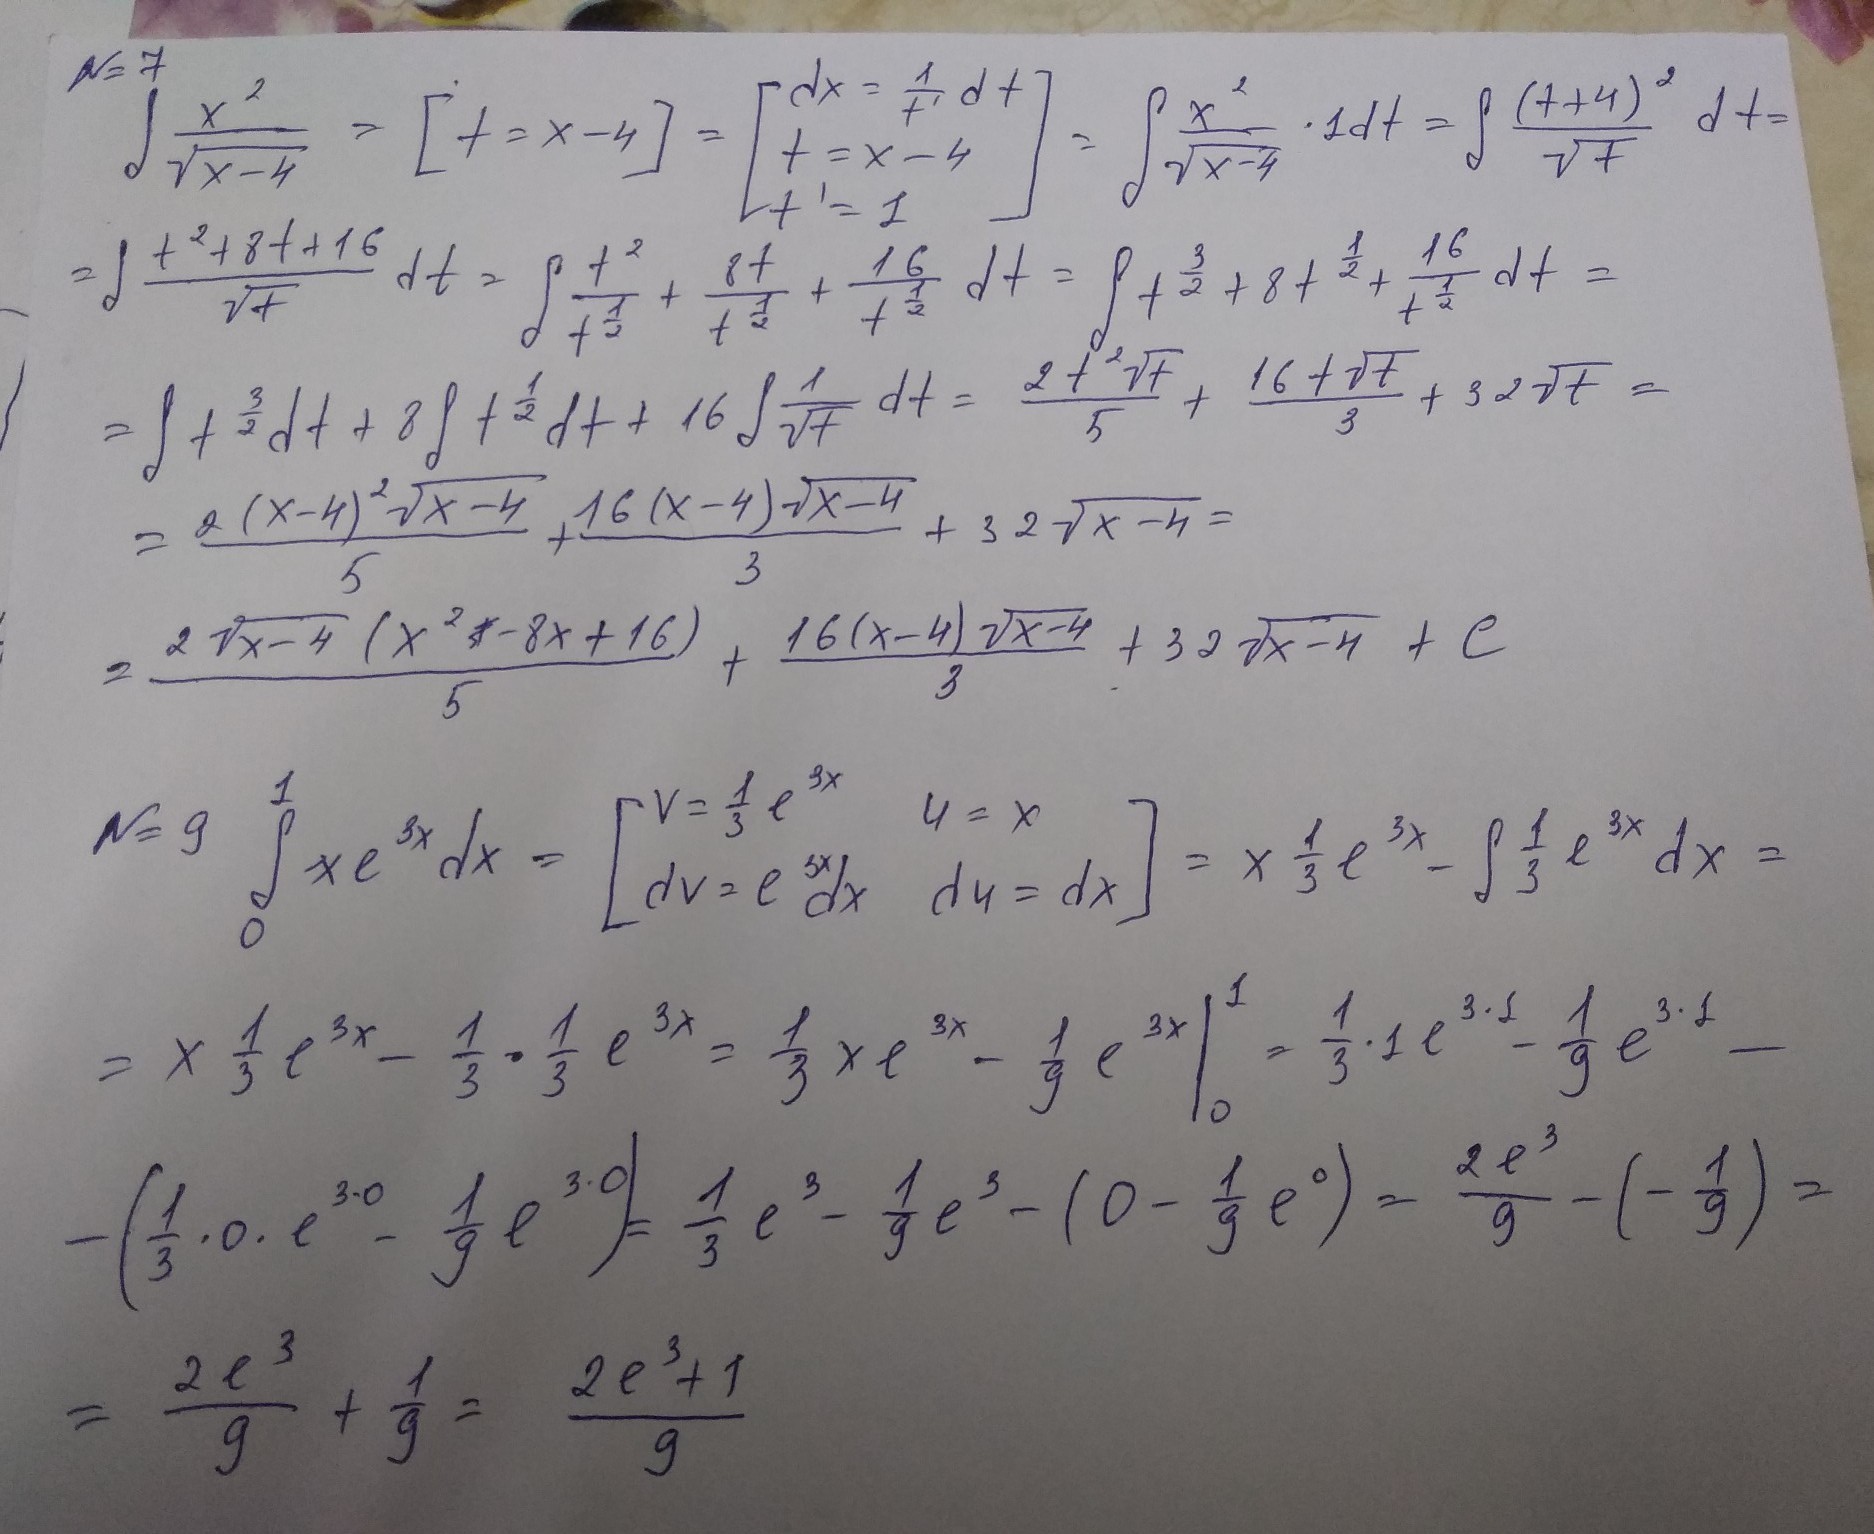 № 7
∫ x²/√(x-4) = [t = x-4] = [dx = 1/t' dt; t = x-4; t' = 1] = ∫ x²/√(x-4) · 1dt = ∫ (t+4)²/√t dt =
= ∫ (t²+8t+16)/√t dt = ∫ t²/t^(1/2) + 8t/t^(1/2) + 16/t^(1/2) dt = ∫ t^(3/2) + 8t^(1/2) + 16/t^(1/2) dt =
= ∫ t^(3/2) dt + 8∫ t^(1/2) dt + 16 ∫ 1/√t dt = 2t²√t/5 + 16t√t/3 + 32√t =
= 2(x-4)²√(x-4)/5 + 16(x-4)√(x-4)/3 + 32√(x-4) =
= 2√(x-4) (x² - 8x + 16)/5 + 16(x-4)√(x-4)/3 + 32√(x-4) + C
№ 9 ∫₀¹ xe^(3x) dx = [v = 1/3 e^(3x) u = x; dv = e^(3x) dx du = dx] = x 1/3 e^(3x) - ∫ 1/3 e^(3x) dx =
= x 1/3 e^(3x) - 1/3 · 1/3 e^(3x) = 1/3 xe^(3x) - 1/9 e^(3x) |₀¹ = 1/3 · 1e^(3·1) - 1/9 e^(3·1) -
- (1/3 · 0 · e^(3·0) - 1/9 e^(3·0)) = 1/3 e³ - 1/9 e³ - (0 - 1/9 e⁰) = 2e³/9 - (- 1/9) =
= 2e³/9 + 1/9 = (2e³+1)/9